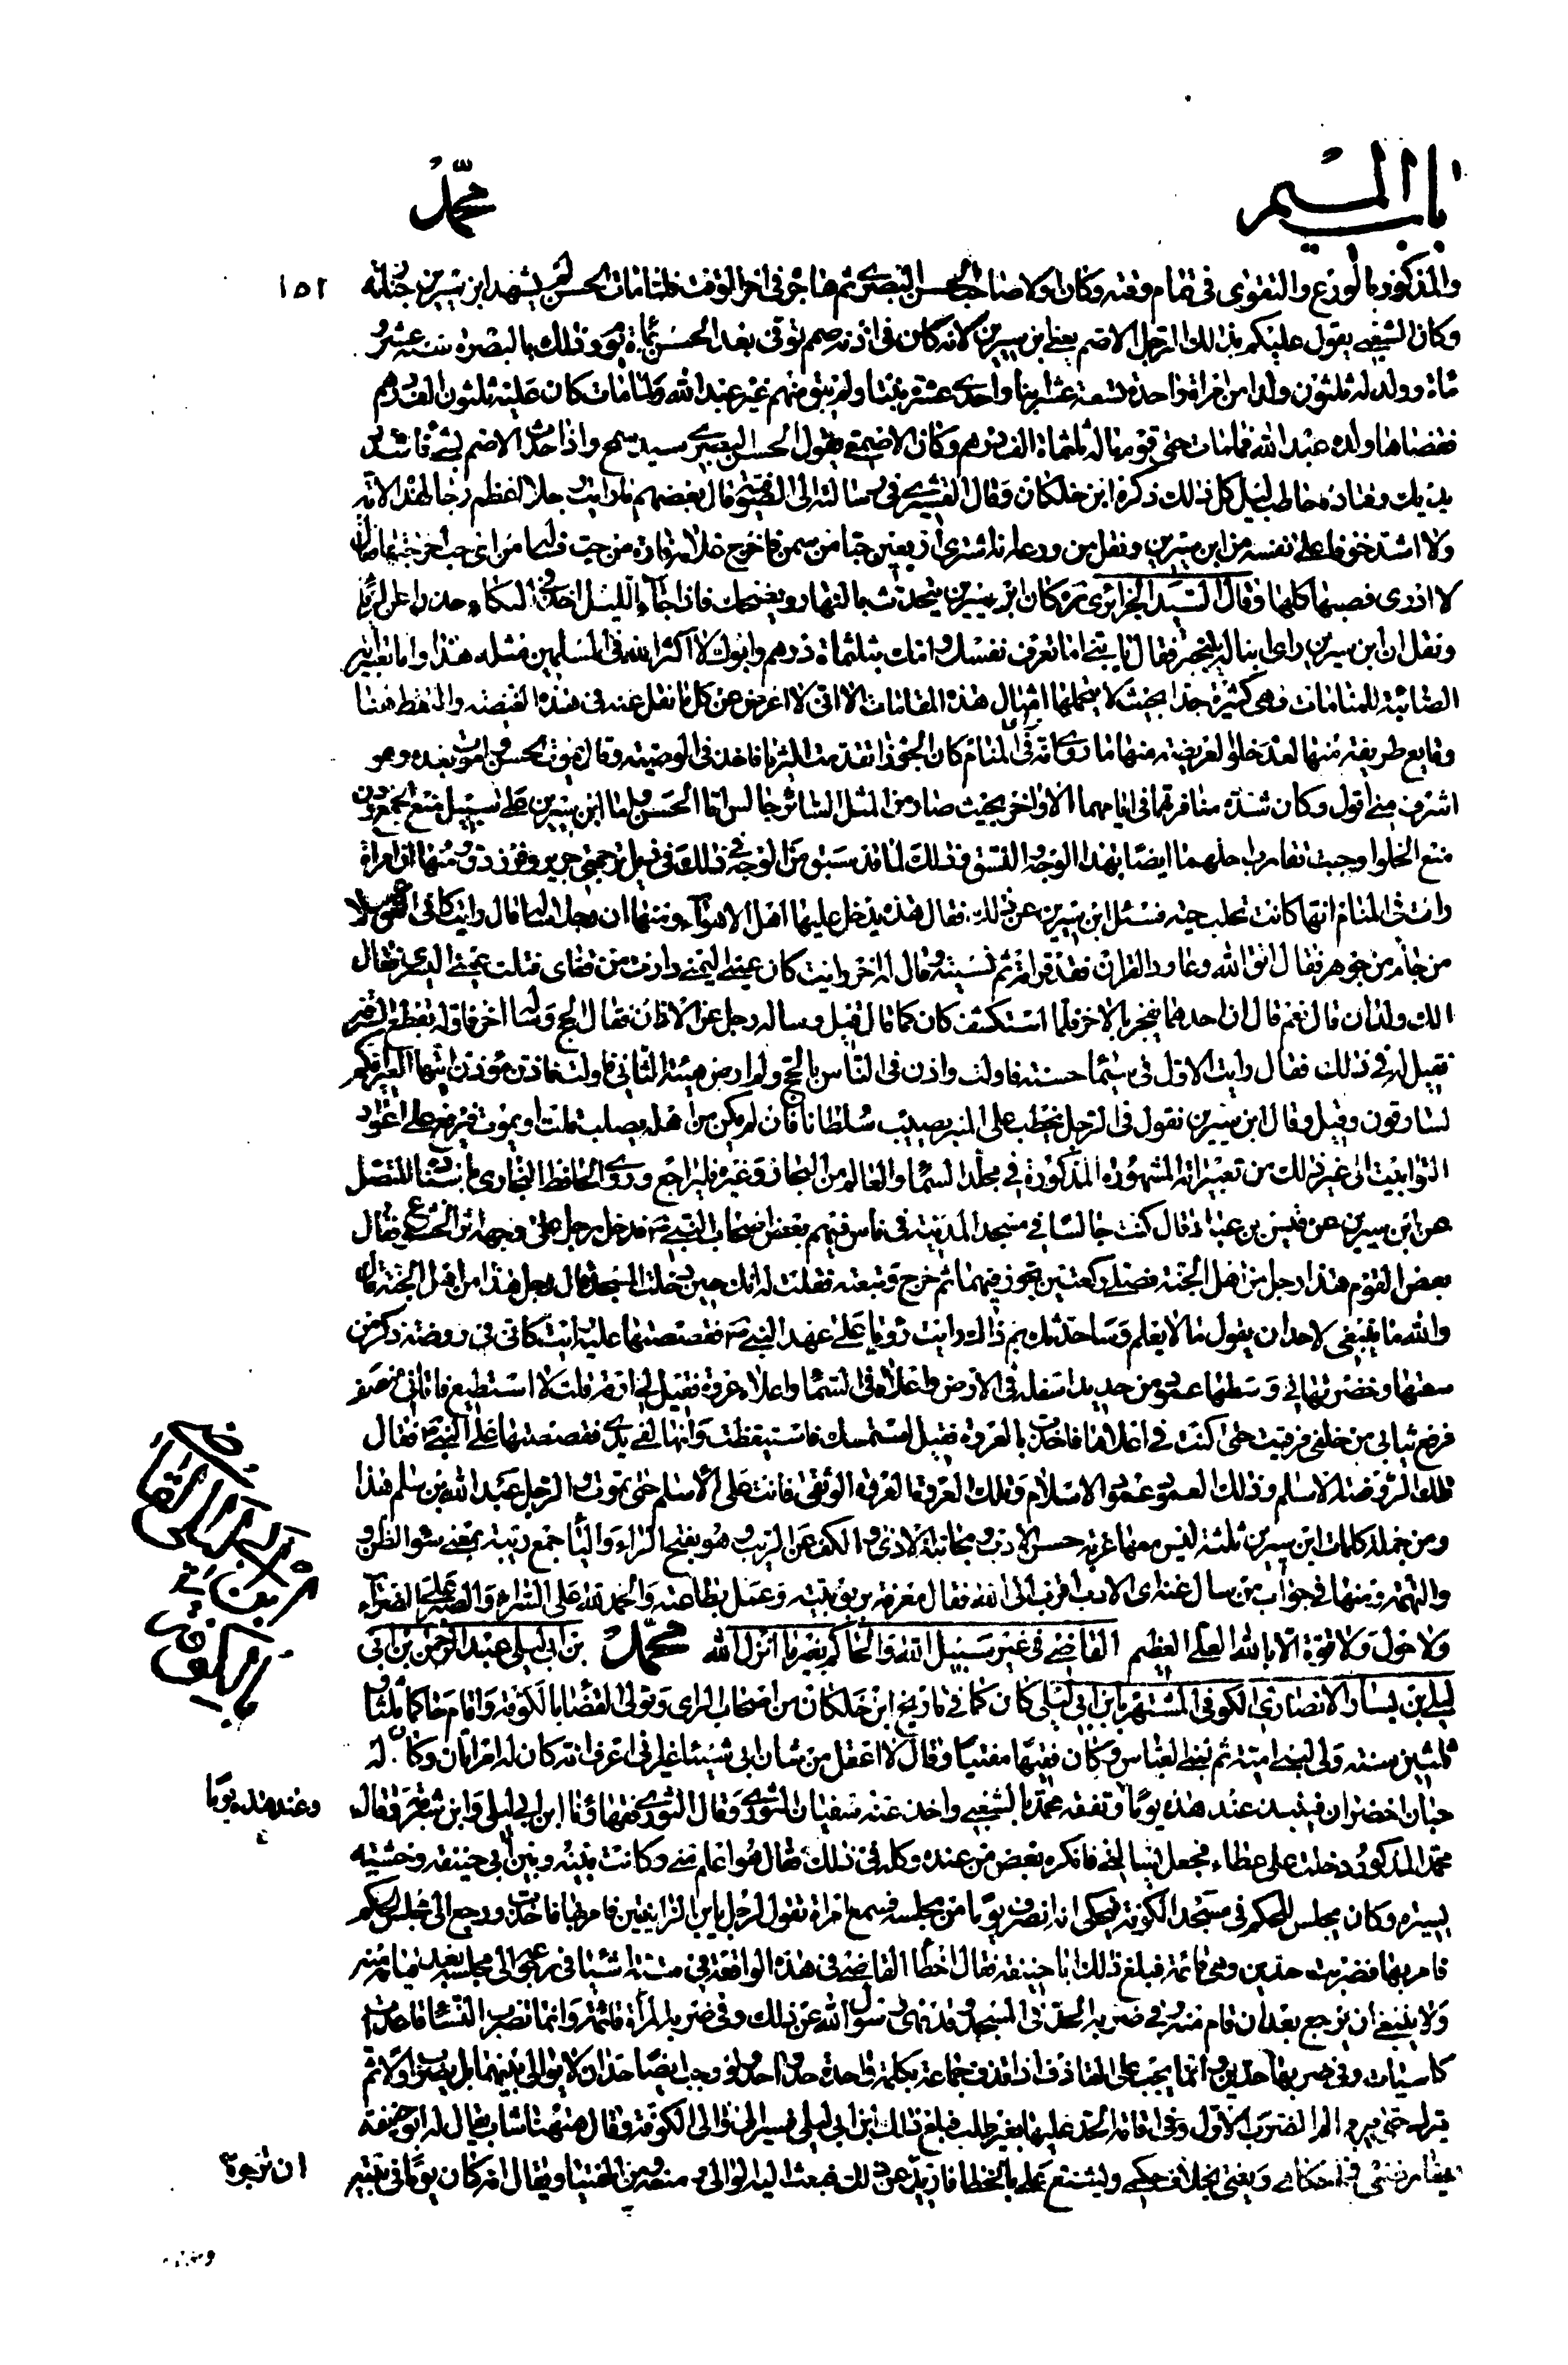 باب الميم
محمّد
١٥٢
والمذكور بالورع والتقوى فى تمام وقته وكان اولا صاحب الحسن البصرى ثم هاجره فى اخر الوقت فلما مات الحسن لم يشهد ابن سيرين جنازته
وكان الشعبى يقول عليكم بذلك الرجل الاصم يعنى ابن سيرين لانه كان فى اذنه صمم توفى بعد الحسن بمائة يوم وذلك بالبصرة سنة عشر و
مأة وولد له ثلثون ولدا من امرأة واحدة تسعة عشر ابنا واحدى عشرة بنتا ولم يبق منهم غير عبد الله ولما مات كان عليه ثلثون الف درهم
فقضاها ولده عبد الله فما مات حتى قوم ماله ثلثمأة الف درهم وكان الاصمعى يقول الحسن البصرى سيد سمح واذا حدث الاصم بشىء فاشدد
يديك وقتادة حاطب ليل كل ذلك ذكره ابن خلكان وقال القشيرى فى رسالته الى الصوفية وقال بعضهم ما رايت رجلا اعظم رجا لهذه الامة
ولا اشد خوفا على نفسه من ابن سيرين ونقل من ورعه انه اشترى اربعين حبا من سمن فاخرج غلامه فارة من حب فسأله من اى حب اخرجتها فقال
لا ادرى فصبها كلها وقال السيد الجزائرى ره كان ابن سيرين يتحدث بالنهار ويضحك فاذا جاء الليل اخذ فى البكاء حذرا عن الريا
ونقل ان ابن سيرين راى ابنا له يتبختر فقال يا بنى اما تعرف نفسك وامك بثلثمأة درهم وابوك لا اكثر الله فى المسلمين مثله هذا واما تعابيره
الصائبة للمنامات فهى كثيرة جدا بحيث لا يتحملها امثال هذه المقامات الا انى لا اعرض عن كل ما نقل عنه فى هذه القصة والتقط هنا
وقايع طريفة منها لعدم خلو العريضة منها ما روى انه راى فى المنام كان الجوزا تقدمت الثريا فاخذ فى الوصية وقال يموت الحسن واموت بعده وهو
اشرف منى اقول وكان شدة منافرتهما فى ايامهما الاواخر بحيث صار من المثل السائر جالس اما الحسن واما ابن سيرين على سبيل منع الجمع دون
منع الخلو وجبت تقارب احلهما ايضا بهذا الوجه المتسق فذلك لما قد سبق من الوجه فى ذلك فى ذيل ترجمتى جرير وفرزدق ومنها ان امراة
رات فى المنام انها كانت تحلب حية فسئل ابن سيرين عن ذلك فقال هذه يدخل عليها اهل الاهواء ومنها ان رجلا سأله قال رايت كانى اشرب عسلا
من جام من جوهر فقال اتق الله وعاود القران فقد قراته ثم نسيته وقال له اخر رايت كان عينى اليمنى دارت من قفاى فقبلت عينى اليسرى فقال
الك ولدان قال نعم قال ان احدهما يفجر بالاخر فلما استكشف كان كما قال قيل وساله رجل عن الاذان فقال الحج وسأله اخر فاوله بقطع السرقة
فقيل له فى ذلك فقال رايت الاول فى سيما حسنة فاولت واذن فى الناس بالحج ولم ارض هيئة الثانى فاولت فاذن مؤذن ايتها العير انكم
لسارقون وقيل وقال ابن سيرين نقول فى الرجل يخطب على المنبر يصيب سلطانا فان لم يكن من اهله يصلب
التوابيت الى غير ذلك من تعبيراته المشهورة المذكورة فى مجلد السماء والعالم من البحار وغيره فليراجع وروى الحافظ البخارى باسناده المتصل
عن ابن سيرين عن قيس بن عباد قال كنت جالسا فى مسجد المدينة فى ناس فيهم بعض اصحاب النبى ص فدخل رجل على وجهه اثر الخشوع فقال
بعض القوم هذا رجل من اهل الجنة فصلى ركعتين تجوز فيهما ثم خرج وتبعته فقلت له انك حين دخلت المسجد قال رجل هذا من اهل الجنة قال
والله ما ينبغى لاحد ان يقول ما لا يعلم وساحدثك بم ذاك رايت رؤيا على عهد النبى ص فقصصتها عليه رايت كانى فى روضة ذكر من
سعتها وخضرتها فى وسطها عمود من حديد اسفله فى الارض واعلاه فى السماء واعلاه عروة فقيل لى ارقه قلت لا استطيع فاتانى منصف
فرفع ثيابى من خلفى فرقيت حتى كنت فى اعلاها فاخذت بالعروة فقيل استمسك فاستيقظت وانها لفى يدى فقصصتها على النبى ص فقال
تلك الروضة الاسلام وذلك العمود عمود الاسلام وتلك العروة العروة الوثقى فانت على الاسلام حتى تموت والرجل عبد الله بن سلام هذا
ومن جملة كلمات ابن سيرين ثلثة ليس معها غربة حسن الادب ومجانبة الاذى والكف عن الريب وهو بفتح الراء والياء جمع ريبة بمعنى سوء الظن و
والتهمة ومنها فى جواب من سال عنه اى الادب اقرب الى الله فقال معرفة بربوبيته وعمل بطاعته والحمد لله على السراء والصبر على الضراء
ولا حول ولا قوة الا بالله العلى العظيم القاضى فى غير سبيل الله والحاكم بغير ما انزل الله محمّد بن ابى ليلى عبد الرحمن بن ابى
ليلى بن يسار الانصارى الكوفى المشتهر بابن ابى ليلى كان كما فى تاريخ ابن خلكان من اصحاب الراى وتولى القضا بالكوفة واقام حاكما ثلثا و
ثلثين سنة ولى لبنى امية ثم لبنى العباس وكان فقيها مفتيا وقال لا اعقل من شان ابى شيئا غير انى اعرف انه كان له امراتان وكان له
حبان اخضران فينبذ عند هذه يوما وتفقه محمد بالشعبى واخذ عنه سفيان الثورى وقال الثورى فقهاؤنا ابن ابى ليلى وابن شبرمة وقال
وعند هذه يوما
محمد المذكور دخلت على عطاء فجعل يسالنى فانكر بعض من عنده وكلمه فى ذلك فقال هو اعلم منى وكانت بينه وبين ابى حنيفة وحشة
يسيرة وكان يجلس للحكم فى مسجد الكوفة فيحكى انه انصرف يوما من مجلسه فسمع امراة تقول لرجل يا بن الزانيين فامر بها فاخذت ورجع الى مجلس الحكم
فامر بها فضربت حدين وهى قائمة فبلغ ذلك ابا حنيفة فقال اخطأ القاضى فى هذه الواقعة فى ستة اشيا فى رجوعه الى مجلسه بعد قيامه منه
ولا ينبغى ان يرجع بعد ان قام منه وفى ضربه الحد فى المسجد وقد نهى رسول الله عن ذلك وفى ضربه المرأة قائمة وانما تضرب النساء قاعدات
كاسيات وفى ضربه اياها حدين وانما يجب على القاذف اذا قذف جماعة بكلمة واحدة حد واحد ولو وجب ايضا حدان لا يوالى بينهما بل يضرب اولا ثم
يترك حتى يبرء الم الضرب الاول وفى اقامة الحد عليها بغير طلب فبلغ ذلك ابن ابى ليلى فسير الى والى الكوفة وقال ههنا شاب يقال له ابو حنيفة
يعارضنى فى احكامى ويفتى بخلاف حكمى ويشنع على بالخطأ فازجره عن ذلك فبعث اليه الوالى ومنعه من الفتيا ويقال انه كان يوما فى بيته